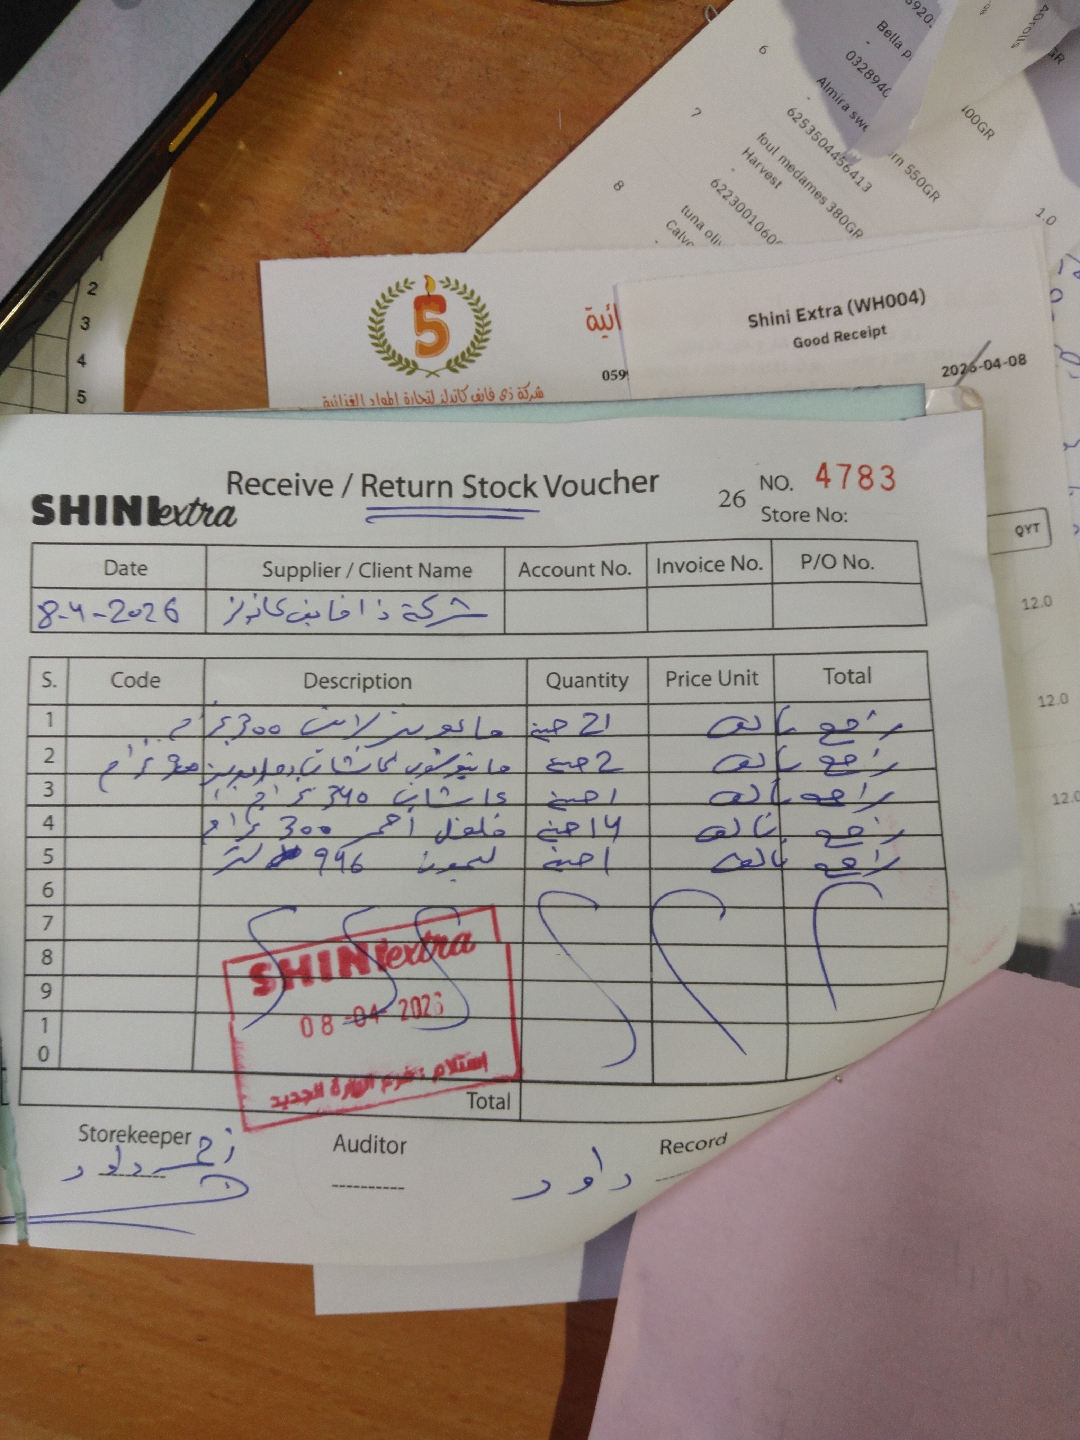 5920
Bella p
-
032894
Almira swe
rn 550GR
100GR
6
7
8
6253504456413
foul medames 380GR
Harvest
-
6223001060
tuna oliv
Calvo
1.0
2
3
4
5
5
ائية
059
شركة ذي فايف كاندلز لتجارة المواد الغذائية
Shini Extra (WH004)
Good Receipt
2026-04-08
QYT
12.0
12.0
12.0
SHINI extra
Receive / Return Stock Voucher
26
NO. 4783
Store No:
Date Supplier / Client Name Account No. Invoice No. P/O No.
8-4-2026 شركة ذا فايف كاندلز
S. Code Description Quantity Price Unit Total
1 مايونيز لايت 300 غرام 21 حبة راجع تالف
2 كاتشاب غرام 2 حبة راجع تالف
3 كاتشاب 340 غرام 1 حبة راجع تالف
4 فلفل أحمر 300 غرام 14 حبة راجع تالف
5 ليمون 946 لتر 1 حبة راجع تالف
6
7
8
9
10
SHINI extra
08-04-2026
استلام : فرع الجديد
Total
Storekeeper Auditor Record
أحمد داود
داود